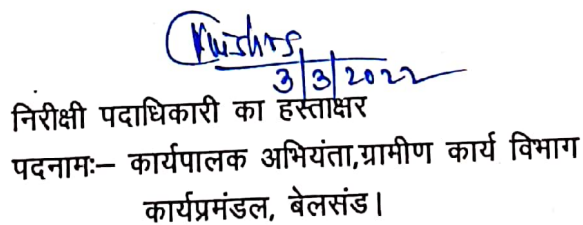 3/3/2022
निरीक्षी पदाधिकारी का हस्ताक्षर
पदनामः– कार्यपालक अभियंता,ग्रामीण कार्य विभाग
कार्यप्रमंडल, बेलसंड।